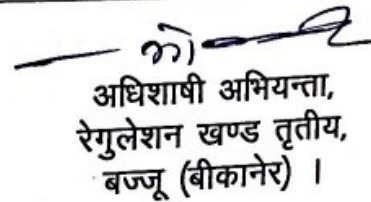 अधिशाषी अभियन्ता,
रेगुलेशन खण्ड तृतीय,
बज्जू (बीकानेर) ।